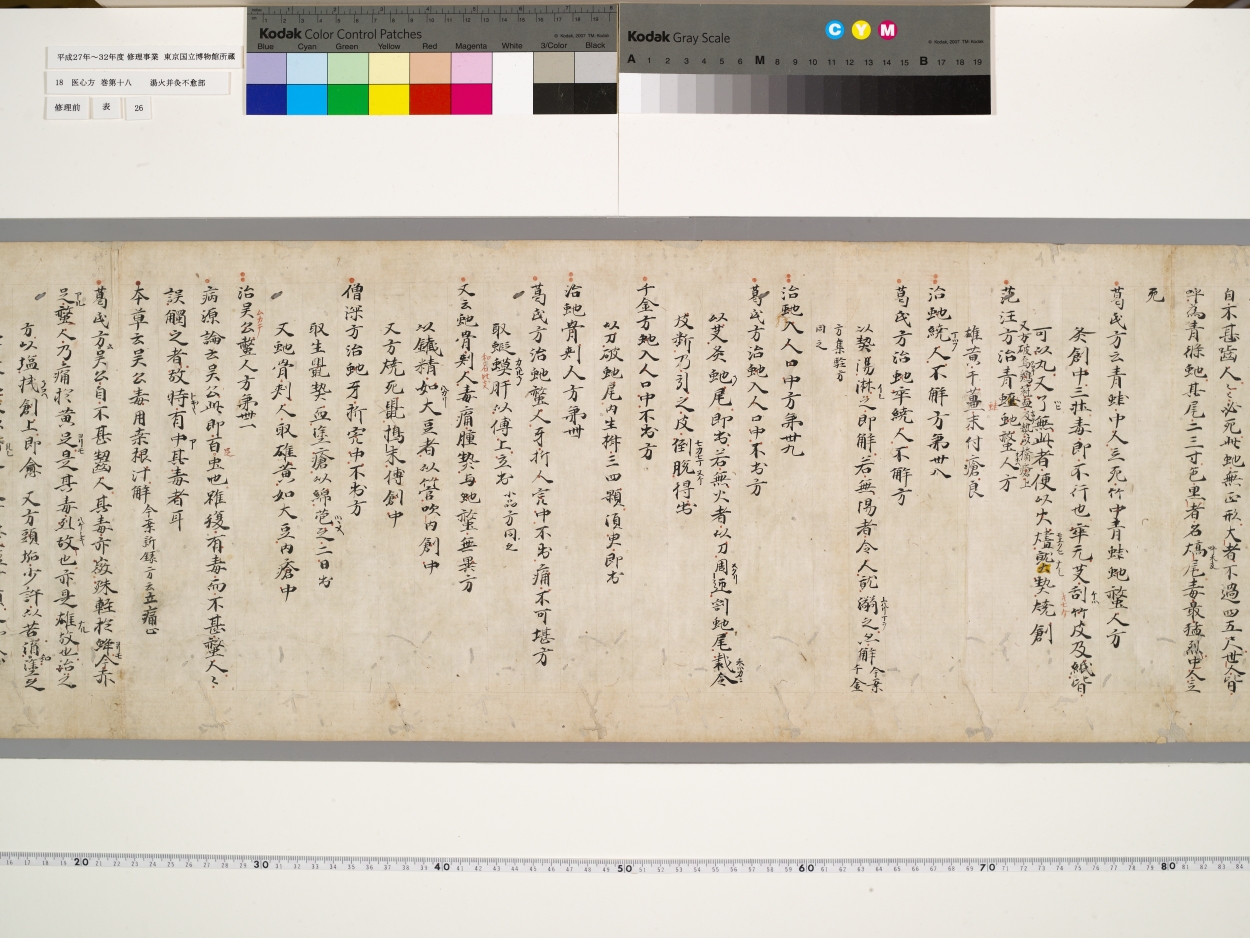 Kodak Color Control Patches
© Kodak, 2007 TM: Kodak
Blue Cyan Green Yellow Red Magenta White 3/Color Black
Kodak Gray Scale
C Y M
© Kodak, 2007 TM: Kodak
A 1 2 3 4 5 6 M 8 9 10 11 12 13 14 15 B 17 18 19
平成27年～32年度 修理事業 東京国立博物館所蔵
18 医心方 巻第十八 湯火并灸不愈部
修理前 表 26
自不甚齒人々必死此虵無正形大者不過四五尺世人皆
呼為青條虵其尾二三寸色黒者名熇尾毒最猛烈中人立
死
葛氏方云青蛙中人立死竹中青蛙虵螫人方
灸創中三壮毒即不行也 艾刮竹皮及紙皆
可以丸又了無此者便以火熱焼創
范汪方治青蛙虵螫人方
雄黄干薑末付瘡良
治虵繞人不解方第卅八
葛氏方治虵牢繞人不解方
以熱湯淋之即解若無湯者令人就溺之亦解今案千金
方集驗方
同之
治虵入人口中方第卅九
葛氏方治虵入人口中不出方
以艾灸虵尾即出若無火者以刀周匝割虵尾截令
皮断乃引之皮倒脱得出
千金方虵入人口中不出方
以刀破虵尾内生椒三四顆須臾即出
治虵骨刺人方第卌
葛氏方治虵螫人牙折人完中不出痛不可堪方
取蝦蟆肝以傅上立出小品方同之
又云虵骨刺人毒痛腫熱与虵螫無異方
以鐵精如大豆者以管吹内創中
又方焼死鼠搗末傅創中
僧深方治虵牙折完中不出方
取生鼠熱血塗瘡以綿苞之二日出
又虵骨刺人取雄黄如大豆内瘡中
治吴公螫人方第卌一
病源論云吴公此即百虫也雖復有毒而不甚螫人々
誤觸之者故時有中其毒者耳
本草云吴公毒用桑根汁解今案新録方云立痛止
葛氏方吴公自不甚齧人其毒亦微殊軽於蜂今赤
足螫人乃痛於黄足是其毒烈故也亦是雄故也治之
方以塩拭創上即愈 又方頭垢少許以苦酒塗之
20 30 40 50 60 70 80